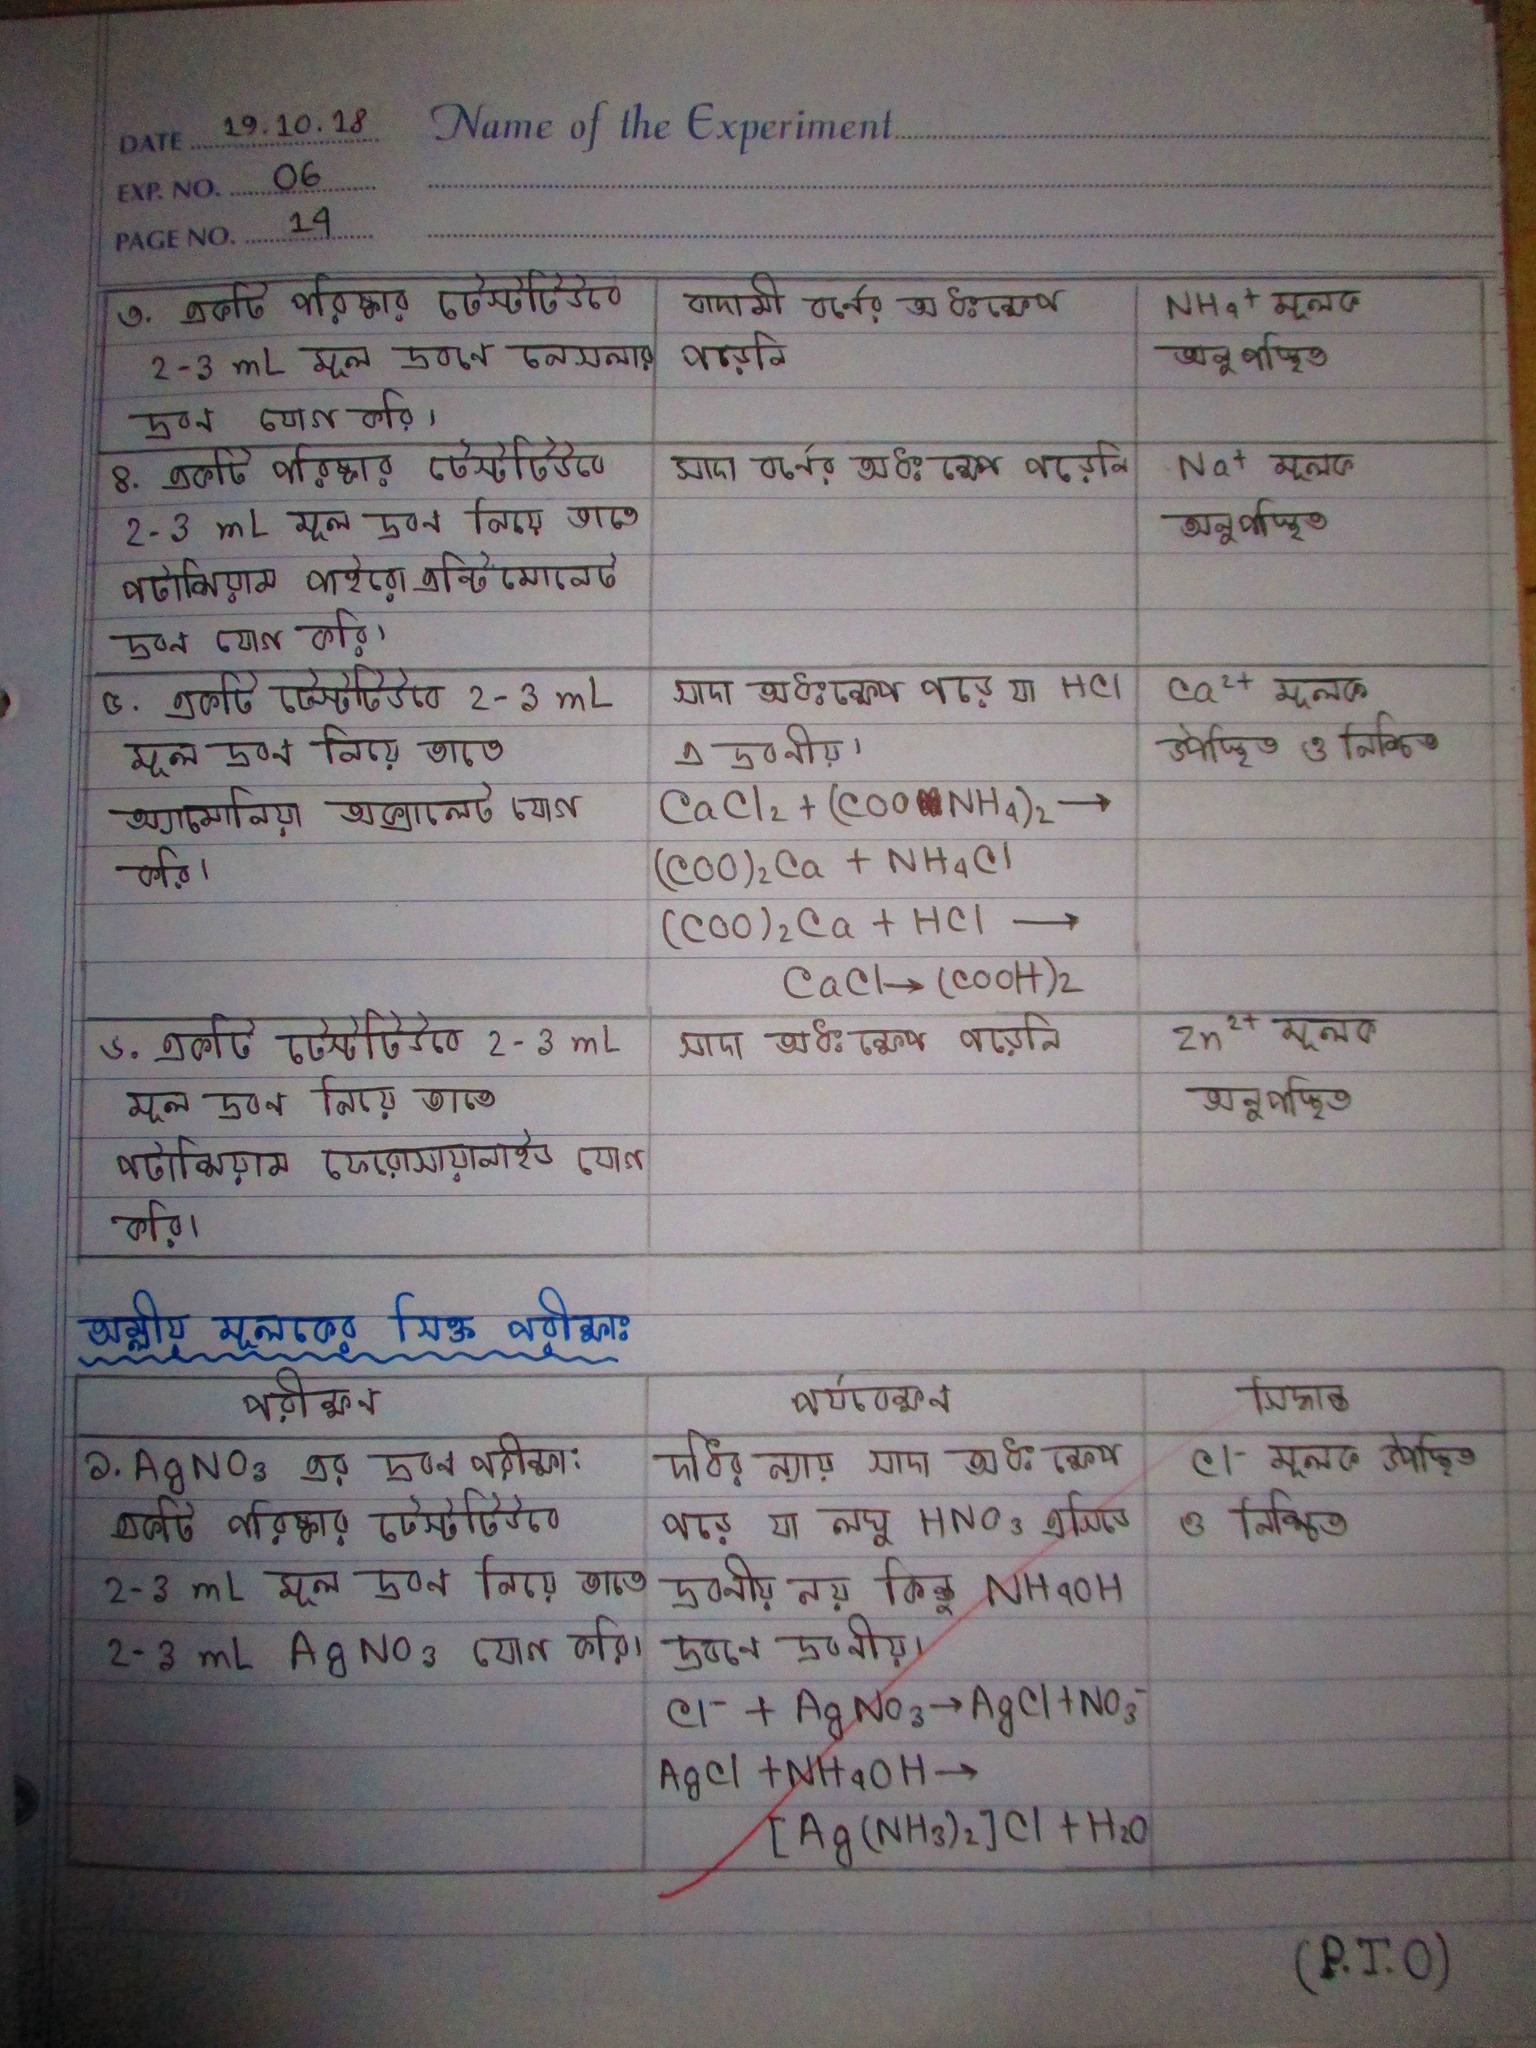 DATE 19.10.18 Name of the Experiment
EXP. NO. 06
PAGE NO. 14
৩. একটি পরিষ্কার টেস্টটিউবে
2-3 mL মূল দ্রবণে নেসলার
দ্রবণ যোগ করি।
বাদামী বর্ণের অধঃক্ষেপ
পড়েনি
NH4+ মূলক
অনুপস্থিত
৪. একটি পরিষ্কার টেস্টটিউবে
2-3 mL মূল দ্রবণ নিয়ে তাতে
পটাসিয়াম পাইরো এন্টিমোনেট
দ্রবণ যোগ করি।
সাদা বর্ণের অধঃক্ষেপ পড়েনি
Na+ মূলক
অনুপস্থিত
৫. একটি টেস্টটিউবে 2-3 mL
মূল দ্রবণ নিয়ে তাতে
অ্যামোনিয়া অক্সালেট যোগ
করি।
সাদা অধঃক্ষেপ পড়ে যা HCl
এ দ্রবনীয়।
CaCl2 + (COONH4)2 →
(COO)2Ca + NH4Cl
(COO)2Ca + HCl →
CaCl → (COOH)2
Ca2+ মূলক
উপস্থিত ও নিশ্চিত
৬. একটি টেস্টটিউবে 2-3 mL
মূল দ্রবণ নিয়ে তাতে
পটাসিয়াম ফেরোসায়ানাইড যোগ
করি।
সাদা অধঃক্ষেপ পড়েনি
Zn2+ মূলক
অনুপস্থিত
অম্লীয় মূলকের সিক্ত পরীক্ষাঃ
পরীক্ষণ পর্যবেক্ষণ সিদ্ধান্ত
১. AgNO3 এর দ্রবণ পরীক্ষা:
একটি পরিষ্কার টেস্টটিউবে
2-3 mL মূল দ্রবণ নিয়ে তাতে
2-3 mL AgNO3 যোগ করি।
দধির ন্যায় সাদা অধঃক্ষেপ
পড়ে যা লঘু HNO3 এসিডে
দ্রবনীয় নয় কিন্তু NH4OH
দ্রবণে দ্রবনীয়।
Cl- + AgNO3 → AgCl + NO3-
AgCl + NH4OH →
[Ag(NH3)2]Cl + H2O
Cl- মূলক উপস্থিত
ও নিশ্চিত
(P.T.O)